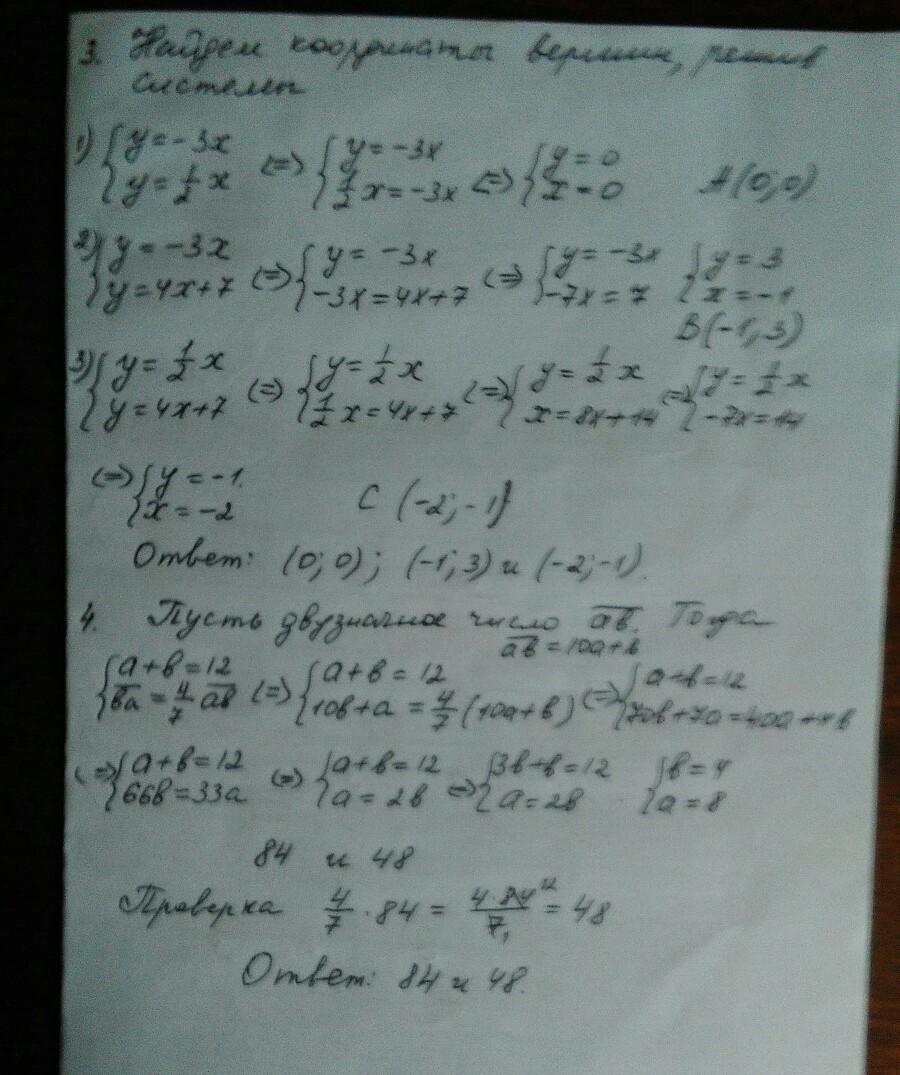 3. Найдем координаты вершин, решив
системы
1) { y = -3x ; y = 1/2 x <=> { y = -3x ; 1/2 x = -3x <=> { y = 0 ; x = 0 A(0; 0)
2) { y = -3x ; y = 4x+7 <=> { y = -3x ; -3x = 4x+7 <=> { y = -3x ; -7x = 7 { y = 3 ; x = -1
B(-1; 3)
3) { y = 1/2 x ; y = 4x+7 <=> { y = 1/2 x ; 1/2 x = 4x+7 <=> { y = 1/2 x ; x = 8x+14 <=> { y = 1/2 x ; -7x = 14
<=> { y = -1. ; x = -2 C (-2; -1)
Ответ: (0; 0); (-1; 3) и (-2; -1).
4. Пусть двузначное число a̅b̅. Тогда
a̅b̅ = 10a+b
{ a+b = 12 ; b̅a̅ = 4/7 a̅b̅ <=> { a+b = 12 ; 10b+a = 4/7 (10a+b) <=> { a+b = 12 ; 70b+7a = 40a+4b
<=> { a+b = 12 ; 66b = 33a <=> { a+b = 12 ; a = 2b <=> { 3b+b = 12 ; a = 2b { b = 4 ; a = 8
84 и 48
Проверка 4/7 · 84 = 4·84 12 / 7 1 = 48
Ответ: 84 и 48.